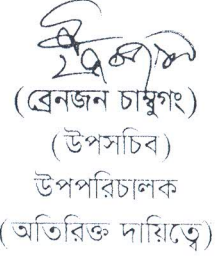 (ব্রেনজন চাম্বুগং)
(উপসচিব)
উপপরিচালক
(অতিরিক্ত দায়িত্বে)